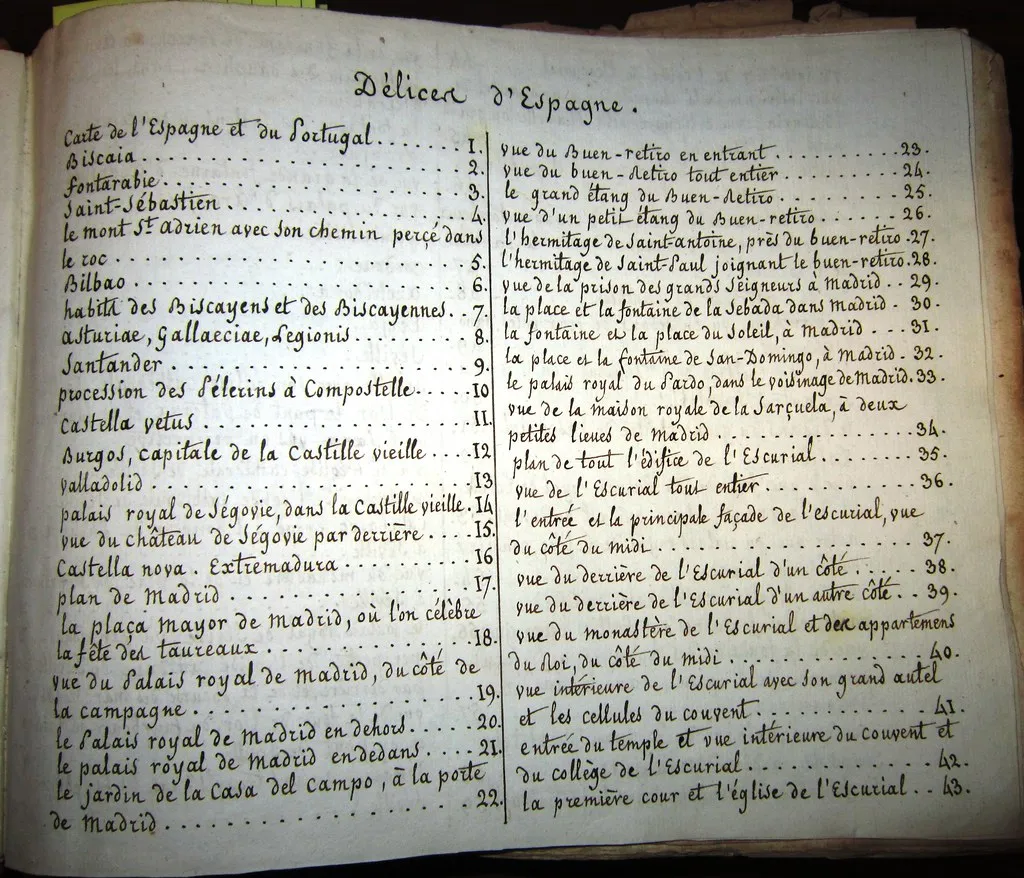 Délices d'Espagne.
Carte de l'Espagne et du Portugal....... 1.
Biscaia................. 2.
fontarabie............... 3.
Saint-Sébastien............ 4.
le mont St. adrien avec son chemin perçé dans
le roc.................. 5.
Bilbao................. 6.
habits des Biscayens et des Biscayennes... 7.
asturiae, Gallaeciae, Legionis........ 8.
Santander............... 9.
procession des Pélerins à Compostelle..... 10
Castella vetus............. 11.
Burgos, capitale de la Castille vieille.... 12
valladolid............... 13
palais royal de Ségovie, dans la Castille vieille. 14
vue du château de Ségovie par derrière.... 15.
Castella nova. Extremadura........ 16
plan de Madrid............ 17.
la plaça mayor de madrid, où l'on célèbre
la fête des taureaux........... 18.
vue du Palais royal de madrid, du côté de
la campagne.............. 19.
le Palais royal de madrid en dehors..... 20.
le palais royal de madrid en dedans.... 21.
le jardin de la Casa del Campo, à la porte
de Madrid............... 22.
vue du Buen-retiro en entrant......... 23.
vue du buen-Retiro tout entier........ 24.
le grand étang du Buen-Retiro....... 25.
vue d'un petit étang du Buen-retiro..... 26.
l'hermitage de Saint-antoine, près du buen-retiro. 27.
l'hermitage de Saint-Paul joignant le buen-retiro. 28.
vue de la prison des grands Seigneurs à Madrid.. 29.
la place et la fontaine de la Sebada dans madrid. 30.
la fontaine et la place du Soleil, à madrid... 31.
la place et la fontaine de San-Domingo, à Madrid. 32.
le palais royal du Pardo, dans le voisinage de Madrid. 33.
vue de la maison royale de la Sarçuela, à deux
petites lieues de madrid........... 34.
plan de tout l'édifice de l'Escurial...... 35.
vue de l'Escurial tout entier......... 36.
l'entrée et la principale façade de l'escurial, vue
du côté du midi.............. 37.
vue du derrière de l'Escurial d'un côté.... 38.
vue du derrière de l'Escurial d'un autre côté.. 39.
vue du monastère de l'Escurial et des appartemens
du Roi, du côté du midi.......... 40.
vue intérieure de l'Escurial avec son grand autel
et les cellules du couvent.......... 41.
entrée du temple et vue intérieure du couvent et
du collège de l'Escurial........... 42.
la première cour et l'église de l'Escurial.. 43.